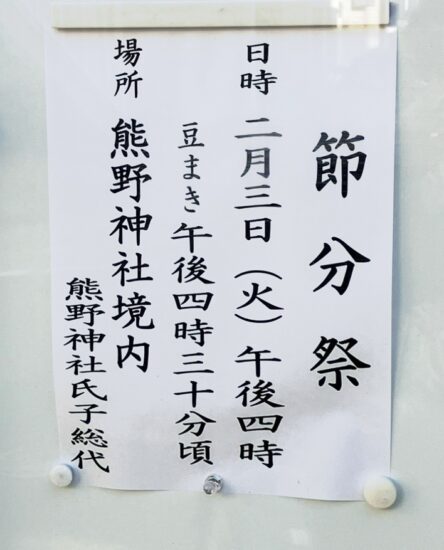 節分祭
日時 二月三日（火）午後四時
豆まき午後四時三十分頃
場所 熊野神社境内
熊野神社氏子総代